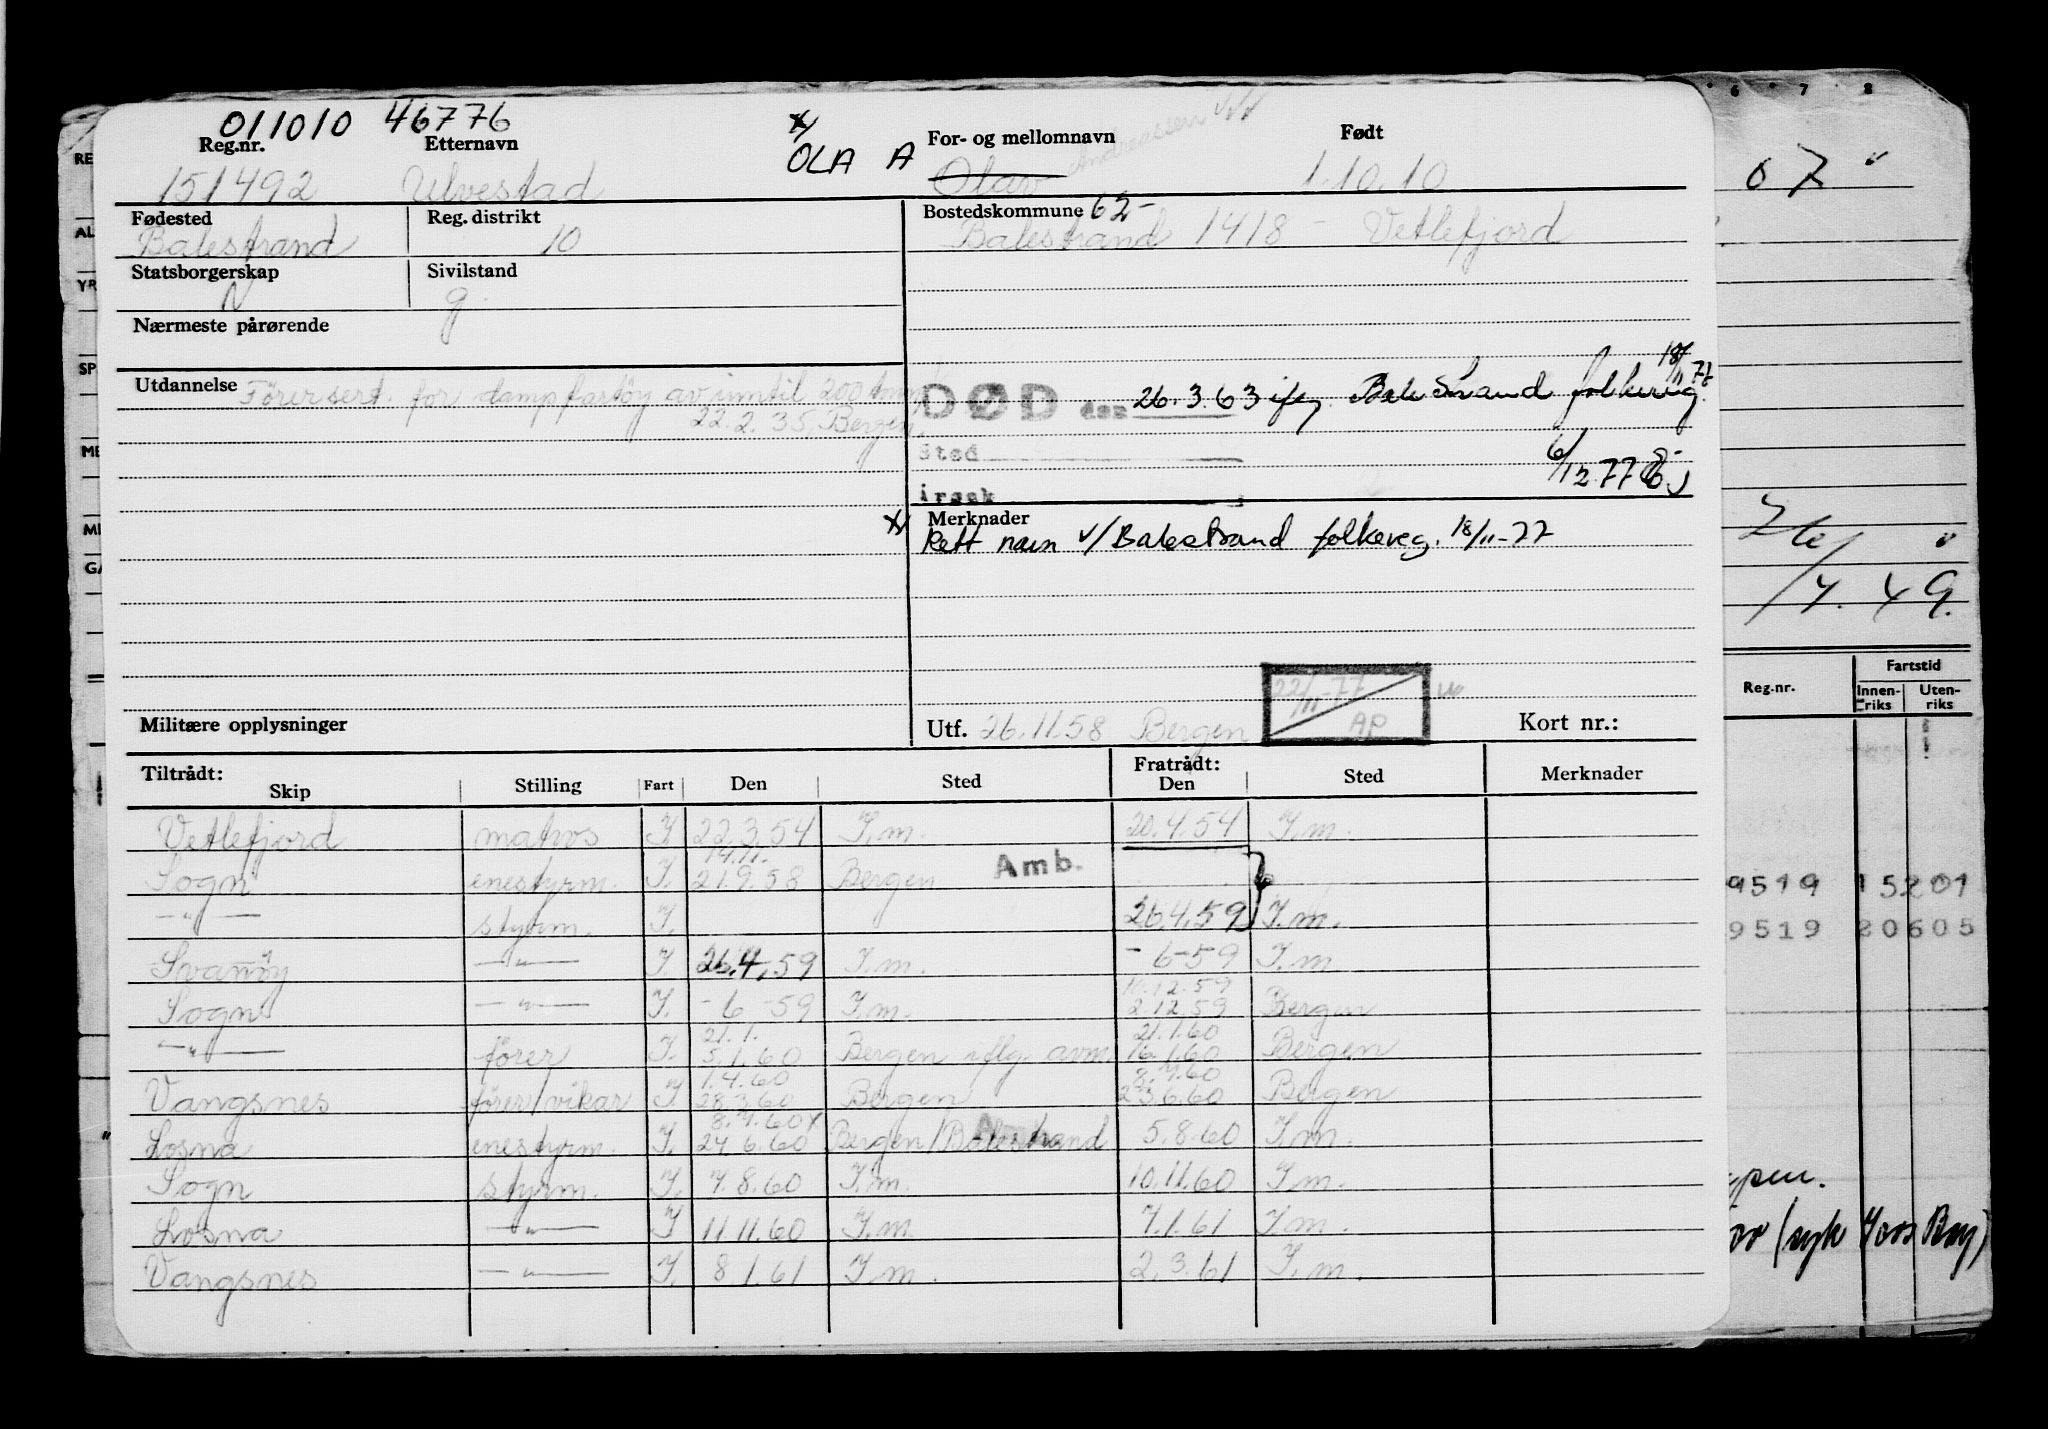 011010 46776
Reg.nr. Etternavn OLA A For- og mellomnavn Født
151492 Ulvestad Olav Andreassen 1.10.10
Fødested Reg. distrikt Bostedskommune 62-
Balestrand 10 Balestrand 1418 - Vetlefjord
Statsborgerskap Sivilstand
N g.
Nærmeste pårørende
Utdannelse Förersert. for dampfartöy av inntil 200 tonn
22.2.35, Bergen.
DØD den 26.3.63 iflg. Balestrand folkereg. 18/11 77
Sted
6/12 77
Årsak
x/ Merknader
Rett navn v/Balestrand folkereg. 18/11-77
22/11-77
AP
Militære opplysninger Utf. 26.11.58 Bergen Kort nr.:
Tiltrådt: Fratrådt:
Skip Stilling Fart Den Sted Den Sted Merknader
Vetlefjord matros I. 22.3.54 I.m. 20.4.54 I.m.
14.11.
Sogn enestyrm. I. 21.9.58 Bergen Amb.
—"— styrm. I. 26.4.59 I.m.
Svanöy —"— I. 26.4.59 I.m. - 6-59 I.m.
10.12.59
Sogn —"— I. - 6 -59 I.m. 2.12.59 Bergen
21.1. 21.1.60
—"— förer I. 5.1.60 Bergen iflg. avm. 16.1.60 Bergen
1.4.60 8.7.60
Vangsnes förer/vikar I 28.3.60 Bergen 23.6.60 Bergen
8.7.60x
Losna enestyrm. I. 24.6.60 Bergen/Balestrand 5.8.60 I.m.
Sogn styrm. I. 7.8.60 I.m. 10.11.60 I.m.
Losna —"— I 11.11.60 I.m 7.1.61 I.m.
Vangsnes —"— I. 8.1.61 I.m. 2.3.61 I.m.
6 7 8
07
/4.49.
Fartstid
Reg.nr. Innen-riks Uten-riks
9519 15201
9519 20605
RE
AL
YR
SP
ME
MI
GA